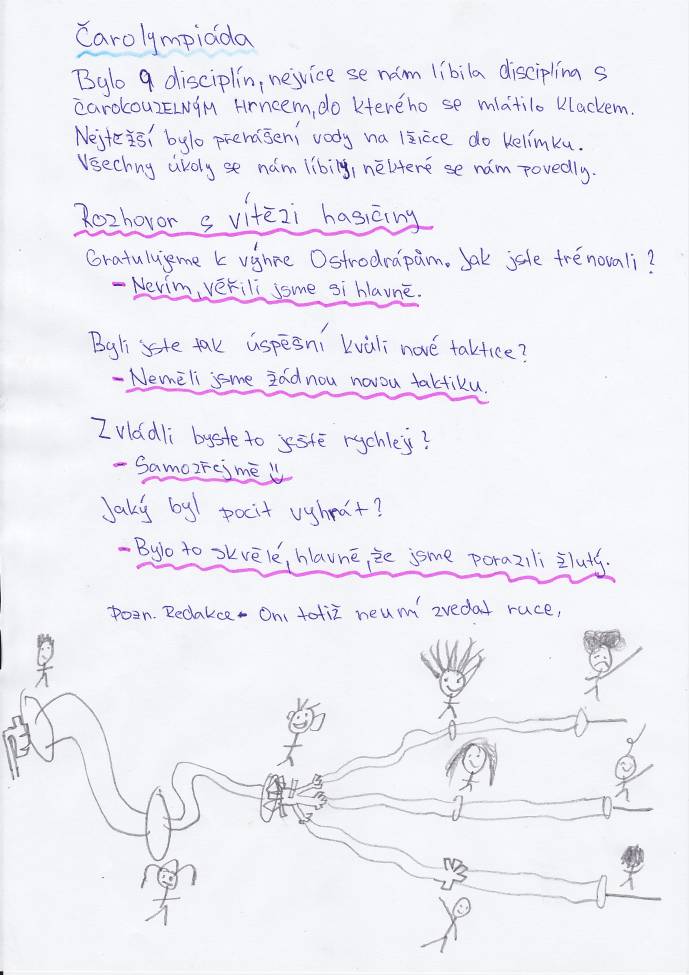 Čarolympiáda
Bylo 9 disciplín, nejvíce se nám líbila disciplína s
čarokouzelným hrncem, do kterého se mlátilo klackem.
Nejtežší bylo přenášení vody na lžičce do kelímku.
Všechny úkoly se nám líbily, některé se nám povedly.
Rozhovor s vítězi hasičiny
Gratulujeme k výhře Ostrodrápům. Jak jste trénovali?
- Nevím, věřili jsme si hlavně.
Byli jste tak úspěšní kvůli nové taktice?
- Neměli jsme žádnou novou taktiku.
Zvládli byste to ještě rychleji?
- Samozřejmě
Jaký byl pocit vyhrát?
- Bylo to skvělé, hlavně, že jsme porazili žlutý.
Pozn. Redakce - Oni totiž neumí zvedat ruce,